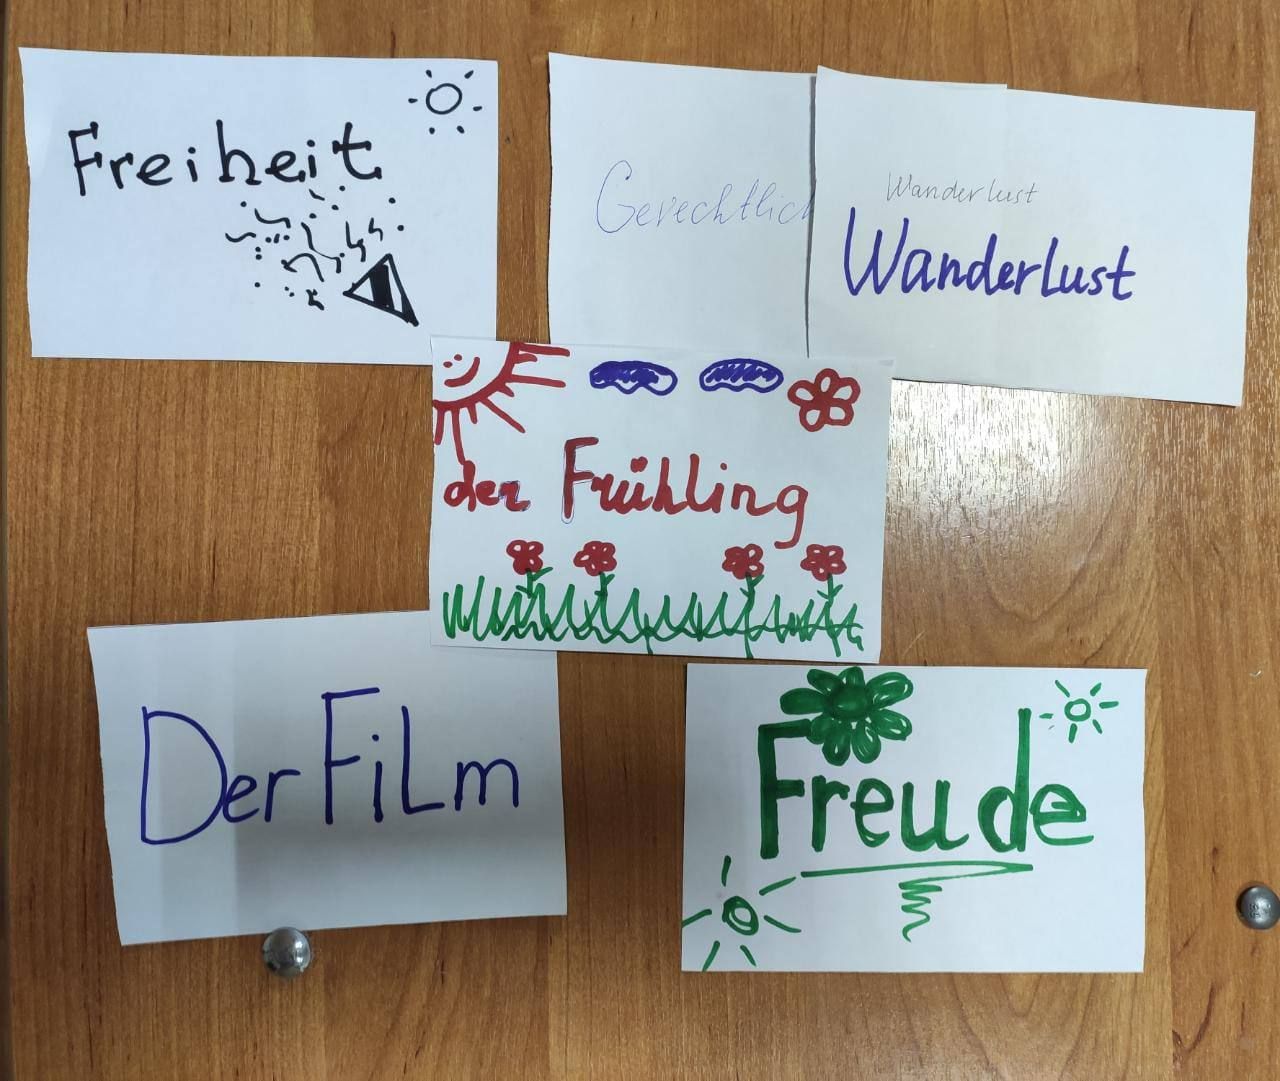 Freiheit
Gerechtlich
Wanderlust
Wanderlust
der Frühling
Der FiLm
Freude